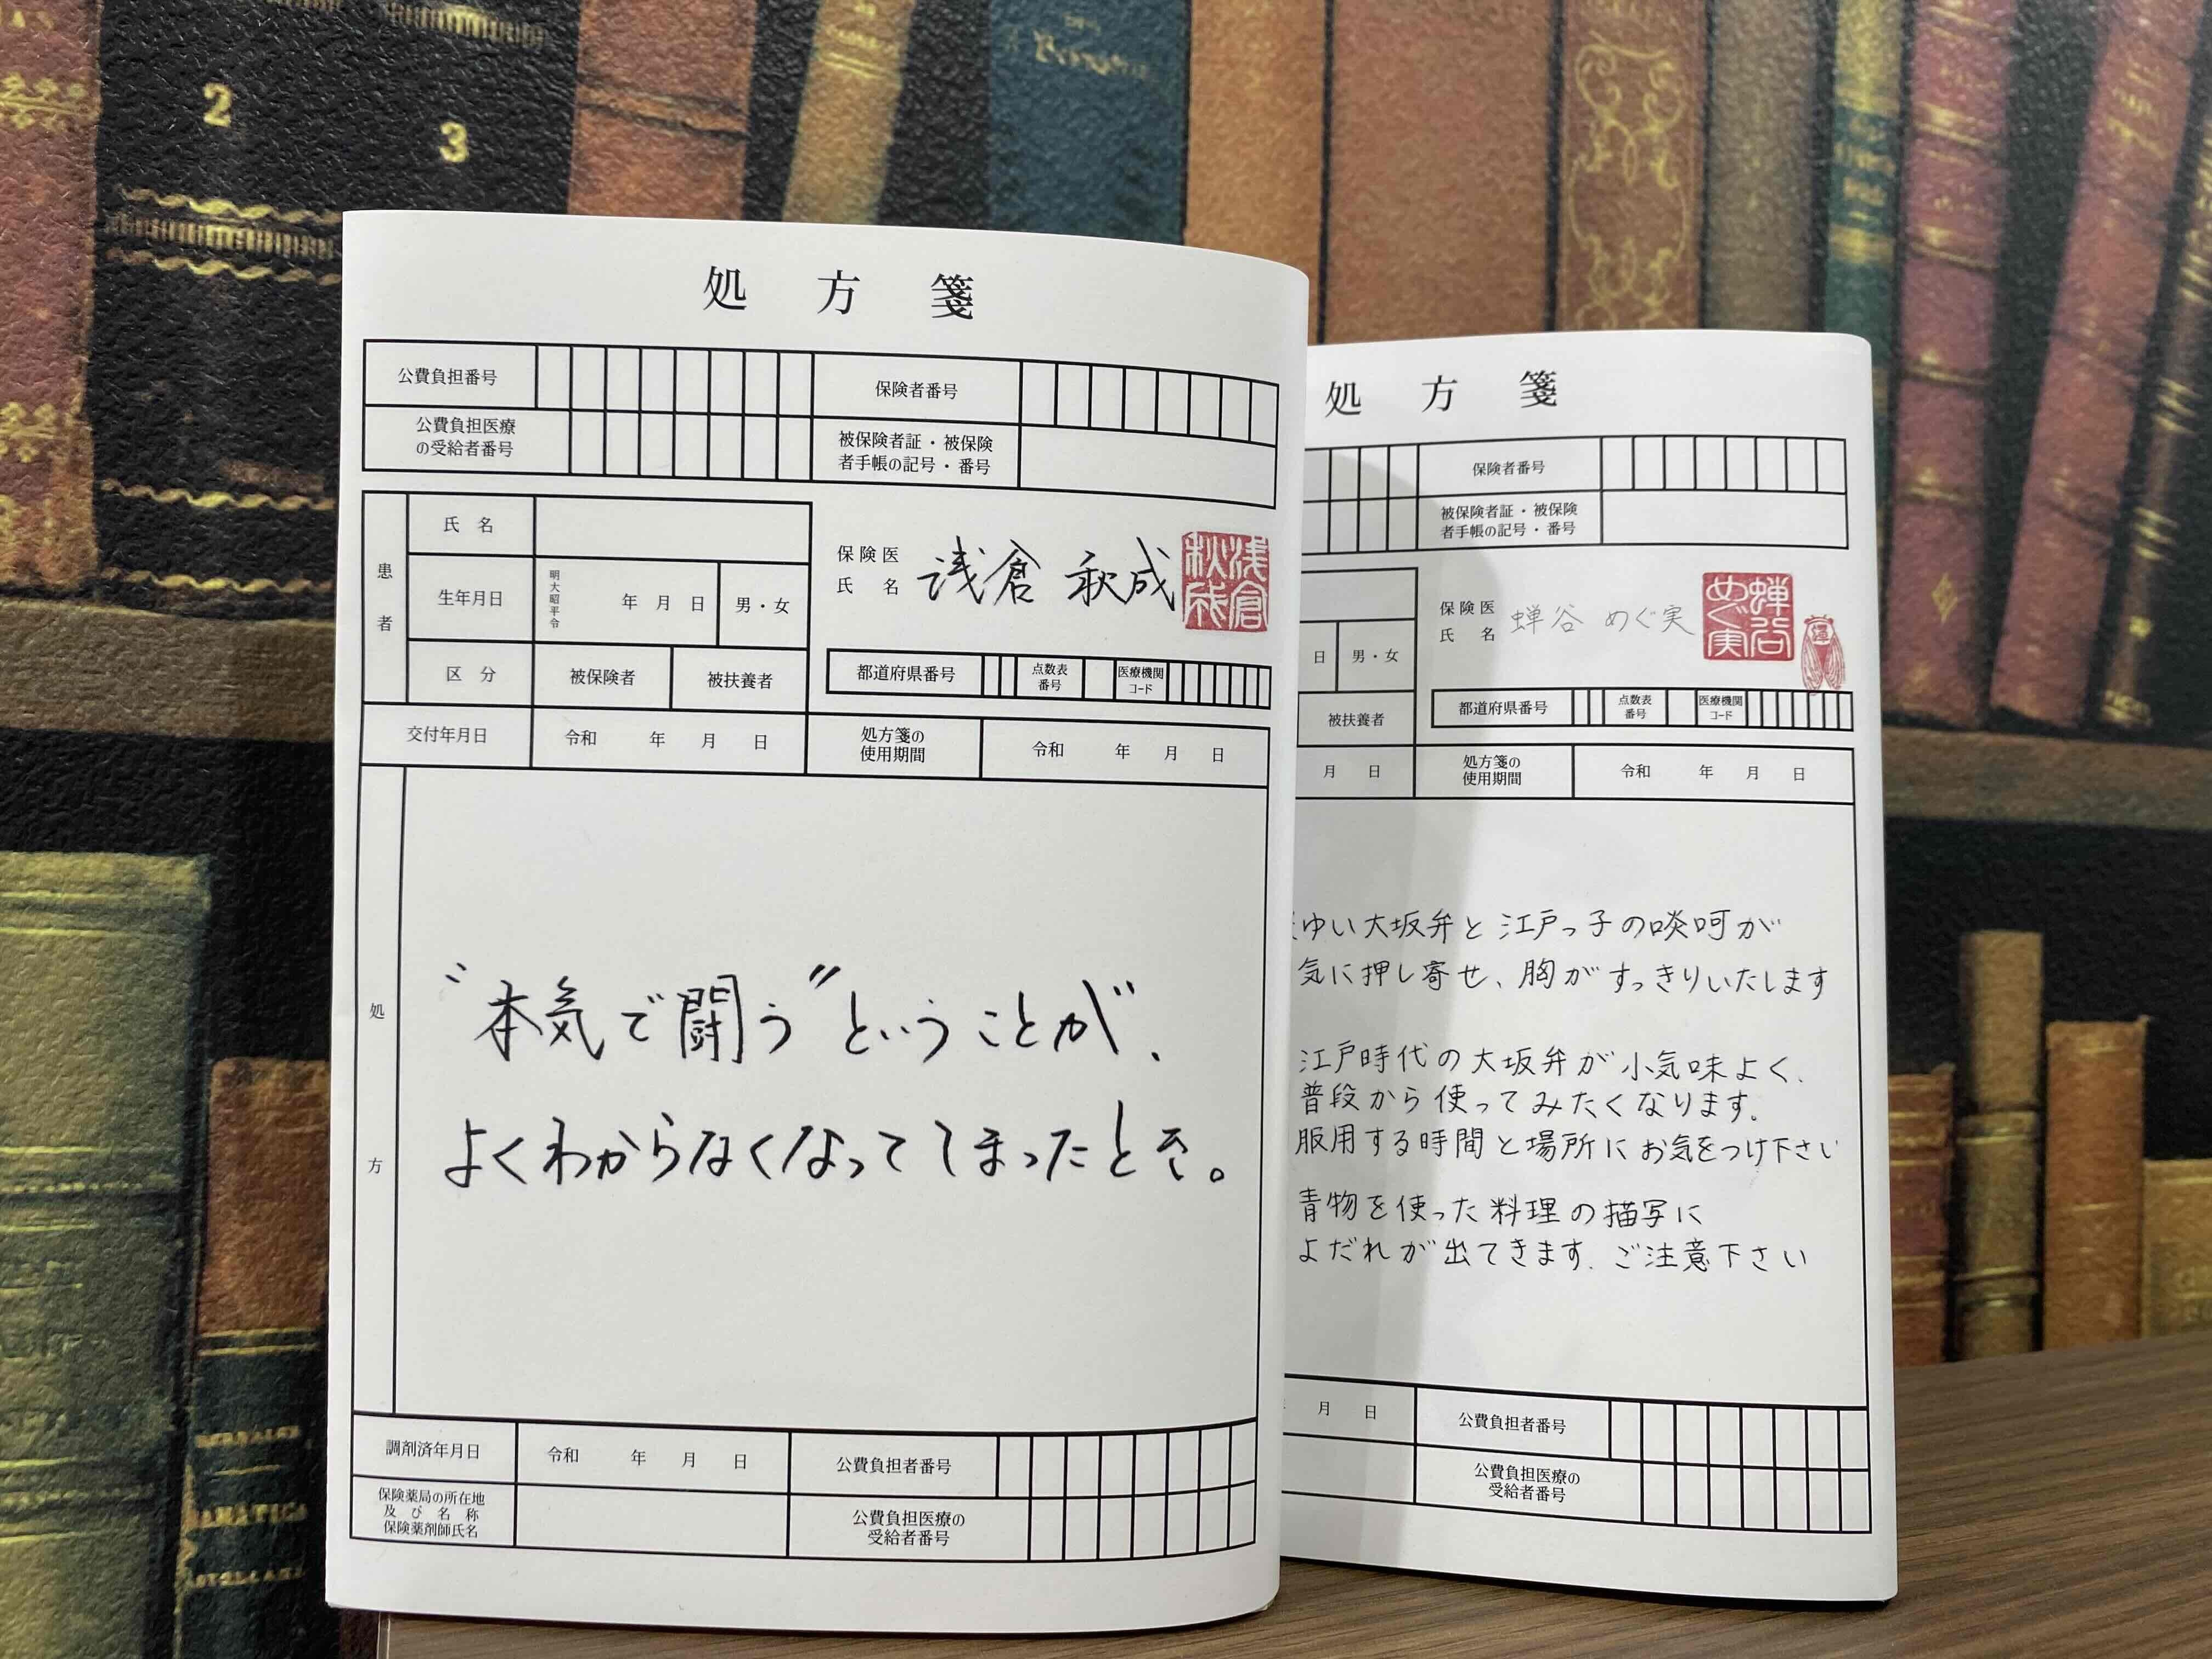 2
3
処方箋
公費負担番号
保険者番号
公費負担医療
の受給者番号
被保険者証・被保険
者手帳の記号・番号
患者
氏名
生年月日
明大昭平令
年 月 日
男・女
区分
被保険者
被扶養者
保険医
氏名
浅倉 秋成
浅倉秋成
都道府県番号
点数表
番号
医療機関
コード
交付年月日
令和 年 月 日
処方箋の
使用期間
令和 年 月 日
処方
"本気で闘う"ということが、
よくわからなくなってしまったとき。
調剤済年月日
令和 年 月 日
公費負担者番号
保険薬局の所在地
及び名称
保険薬剤師氏名
公費負担医療の
受給者番号
処方箋
保険者番号
被保険者証・被保険
者手帳の記号・番号
日
男・女
被扶養者
保険医
氏名
蝉谷 めぐ実
蝉谷めぐ実
都道府県番号
点数表
番号
医療機関
コード
月 日
処方箋の
使用期間
令和 年 月 日
ゆい大坂弁と江戸っ子の啖呵が
気に押し寄せ、胸がすっきりいたします
江戸時代の大坂弁が小気味よく、
普段から使ってみたくなります。
服用する時間と場所にお気をつけ下さい
青物を使った料理の描写に
よだれが出てきます。ご注意下さい
月 日
公費負担者番号
公費負担医療の
受給者番号